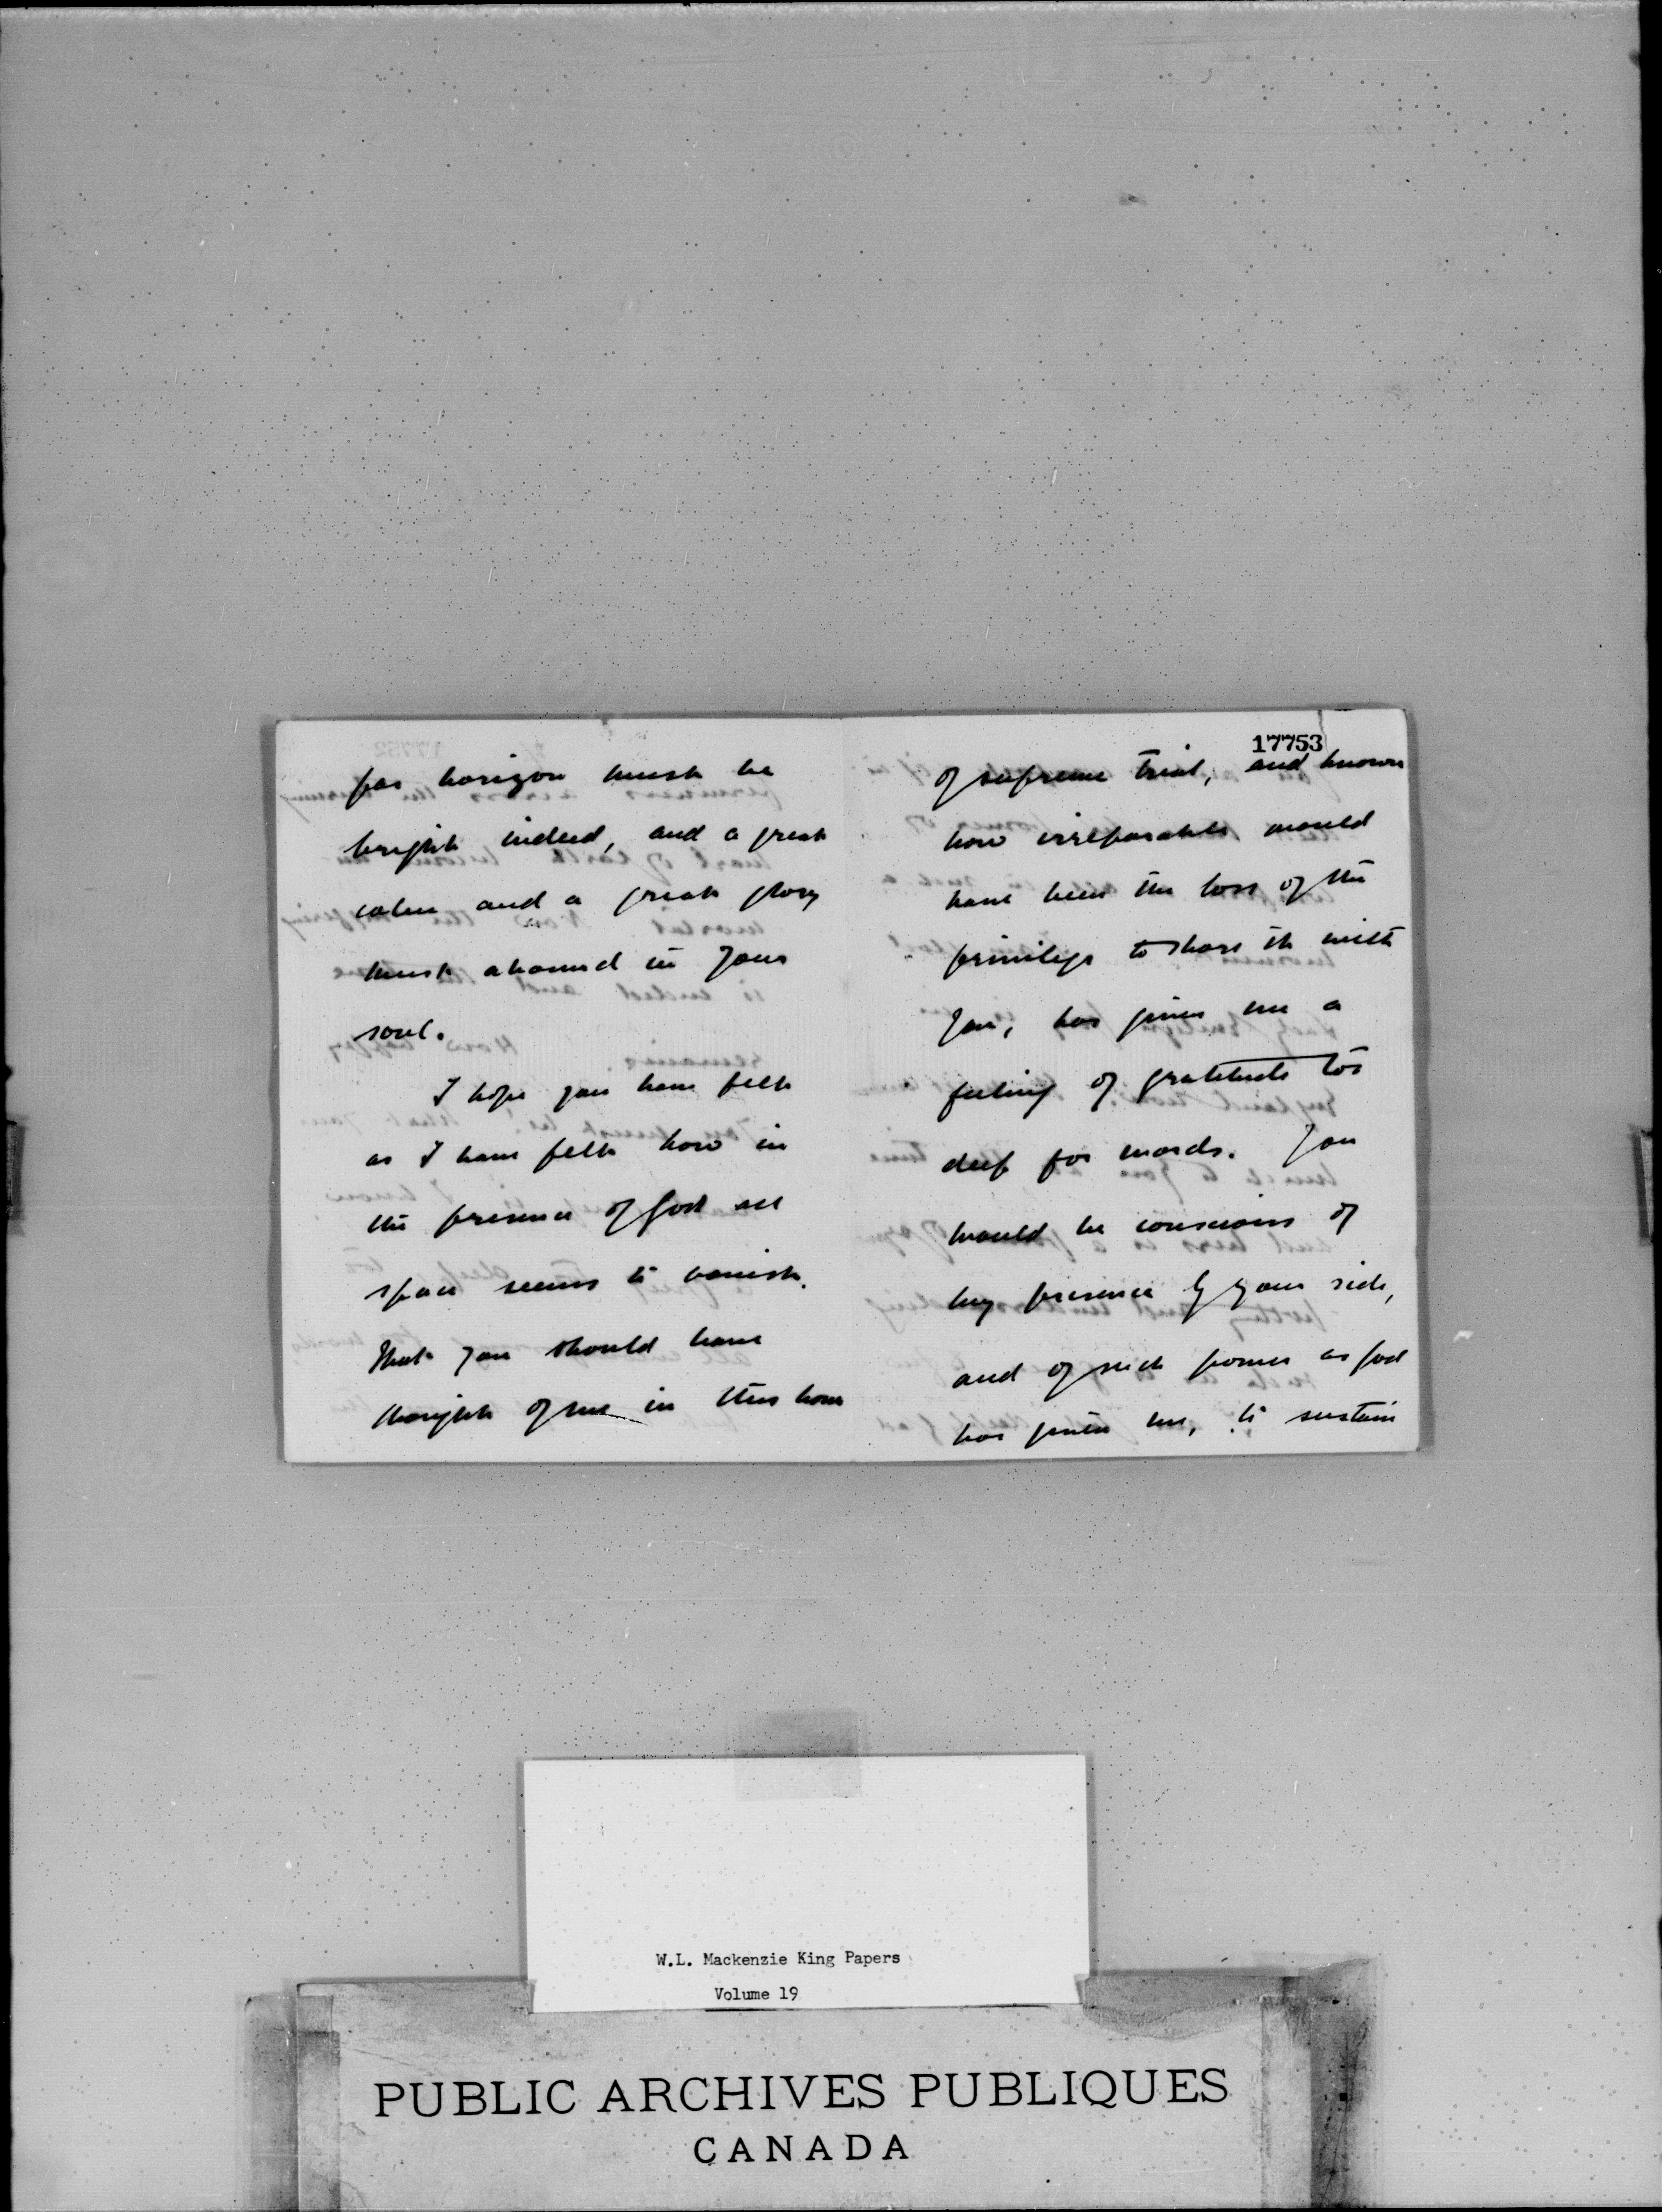 far horizon must be
bright indeed, and a great
calm and a great glory
must abound in your
soul.
I hope you have felt
as I have felt how in
the presence of God all
space seems to vanish.
That you should have
thought of me in this hour
17753
of supreme trial, and known
how irreparable would
have been the loss of the
privilege to share it with
you, has given me a
feeling of gratitude too
deep for words. You
would be conscious of
my presence by your side,
and of such power as God
has given me, to sustain
W.L. Mackenzie King Papers
Volume 19
PUBLIC ARCHIVES PUBLIQUES
CANADA